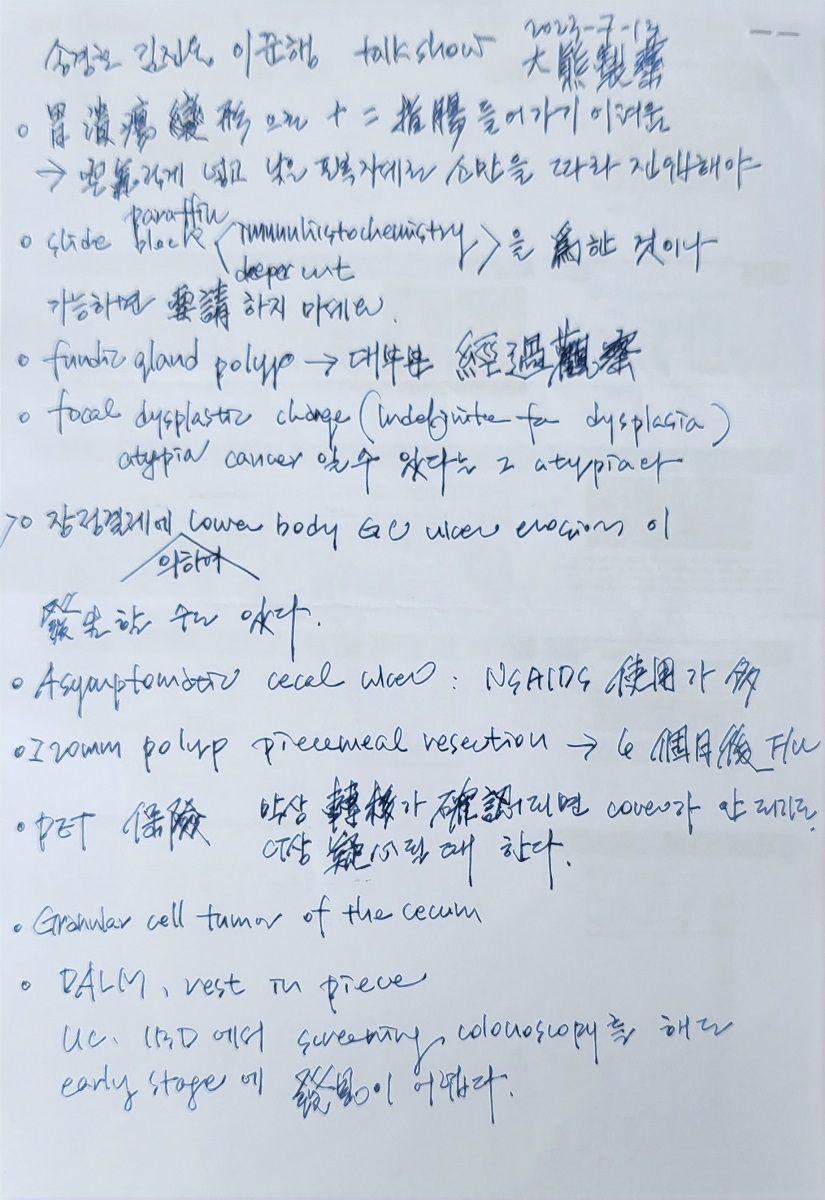 송경호 김진오, 이준행 talk show 2023-7-13
大熊製藥
○ 胃潰瘍 變形으로 十二指腸 들어가기 어려움
→ 空氣 넣고 낮은 자세로 소만을 따라 진입해야
○ slide paraffin block < immunhistochemistry deeper cut > 을 爲한 것이나
가능하면 要請하지 마세요.
○ fundic gland polyp → 대부분 經過觀察
○ focal dysplastic change (indefinite for dysplasia)
atypia cancer 일 수 있다는 그 atypia다
○ 장정결제에 의하여 lower body GC ulcer erosion이
發生할 수도 있다.
○ Asymptomatic cecal ulcer : NSAIDS 使用가 多
○ I 20mm polyp piecemeal resection → 6個月後 F/U
○ PET 保險 상 轉移가 確認되면 cover가 안 되기도.
CT상 疑心될 때 한다.
○ Granular cell tumor of the cecum
○ DALM, rest in piece
UC. IBD에서 screening colonoscopy를 해도
early stage에 發見이 어렵다.